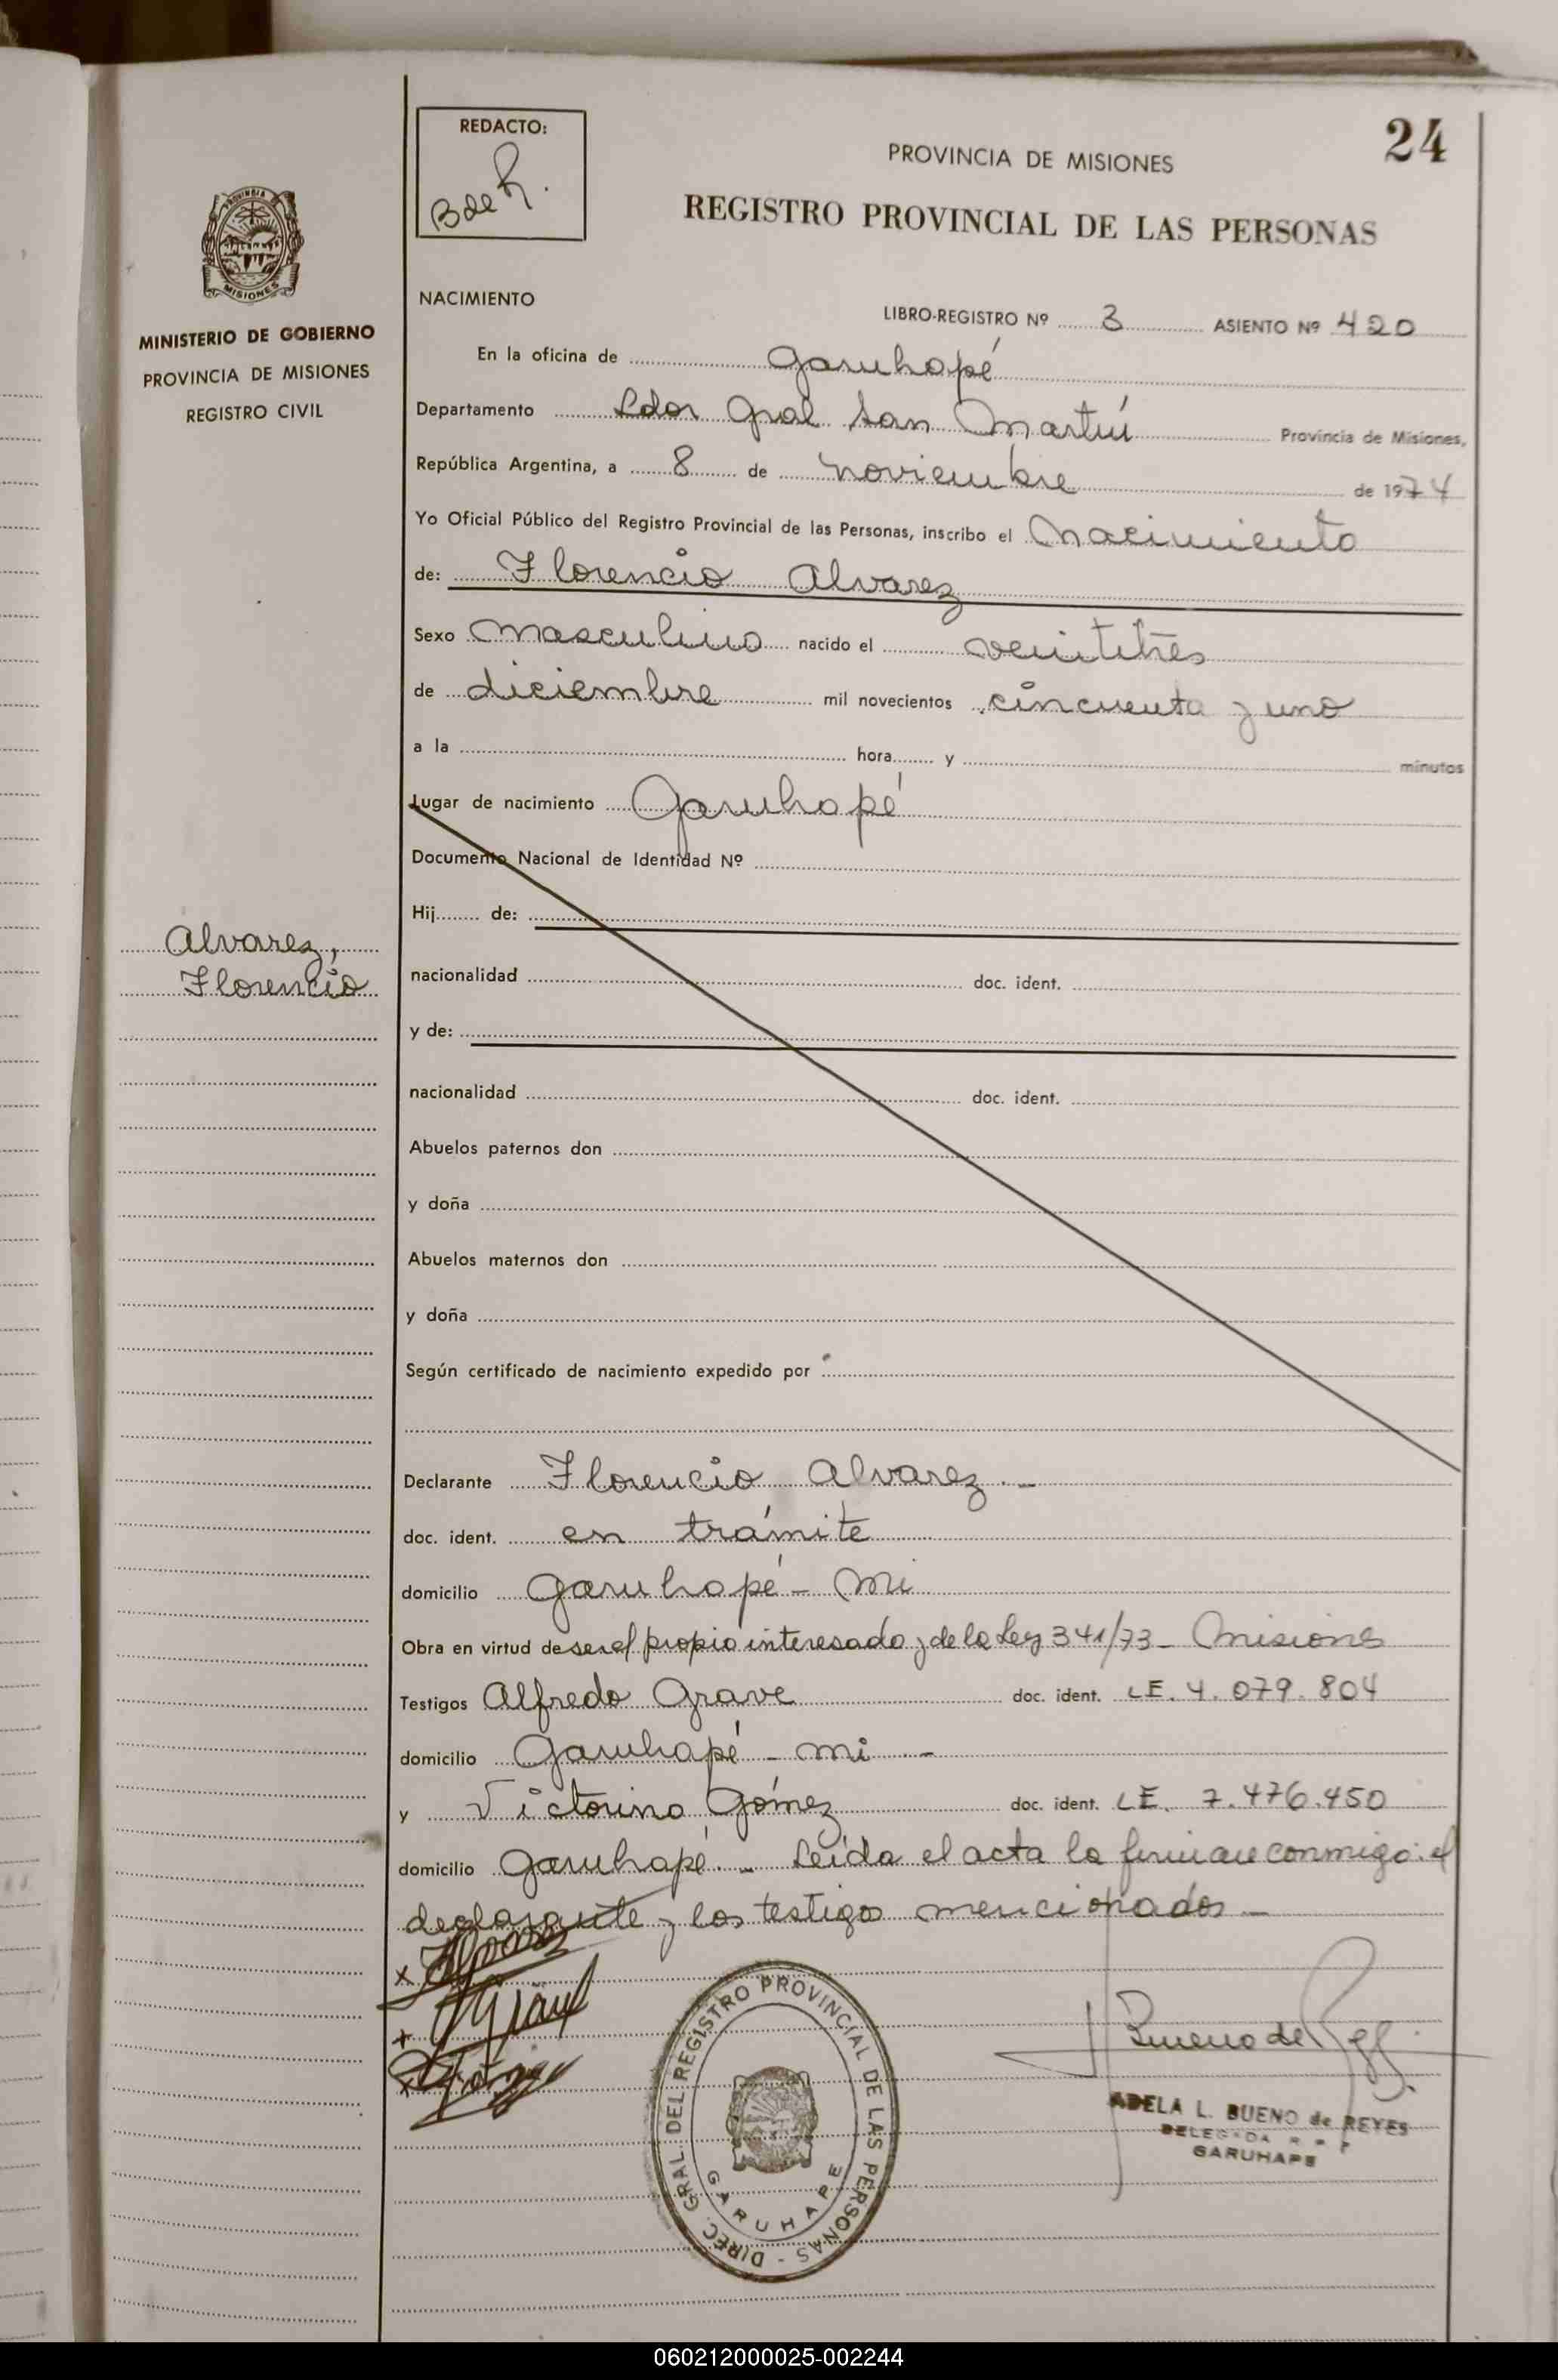 24
REDACTO:
B de R.
PROVINCIA DE MISIONES
REGISTRO PROVINCIAL DE LAS PERSONAS
PROVINCIA
MISIONES
MINISTERIO DE GOBIERNO
PROVINCIA DE MISIONES
REGISTRO CIVIL
Alvarez,
Florencio
NACIMIENTO
LIBRO-REGISTRO Nº 3 ASIENTO Nº 420
En la oficina de Garuhapé
Departamento Ldor Gral San Martín Provincia de Misiones,
República Argentina, a 8 de noviembre de 1974
Yo Oficial Público del Registro Provincial de las Personas, inscribo el nacimiento
de: Florencio Alvarez
Sexo masculino nacido el veintitrés
de diciembre mil novecientos cincuenta y uno
a la hora y minutos
Lugar de nacimiento Garuhapé
Documento Nacional de Identidad Nº
Hij de:
nacionalidad doc. ident.
y de:
nacionalidad doc. ident.
Abuelos paternos don
y doña
Abuelos maternos don
y doña
Según certificado de nacimiento expedido por
Declarante Florencio Alvarez.-
doc. ident. en trámite
domicilio Garuhapé - Mi
Obra en virtud de ser el propio interesado y de la Ley 341/73 - Misiones
Testigos Alfredo Grave doc. ident. LE. 4.079.804
domicilio Garuhapé - mi.-
y Victorino Gómez doc. ident. LE. 7.476.450
domicilio Garuhapé.- Leída el acta la firman conmigo: el
declarante y los testigos mencionados -
DIREC. GRAL. DEL REGISTRO PROVINCIAL DE LAS PERSONAS -
GARUHAPE
Bueno de
ADELA L. BUENO de REYES
DELEGADA R P P
GARUHAPE
060212000025-002244